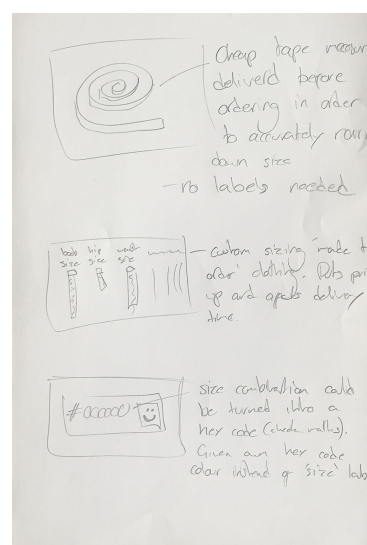 Cheap tape measur
deliverd before
ordering in order
to accurately
down size
- no labels needed
body hip
size size size
- Custom sizing 'made t
order' clothing. Puts pri
up and delivery
time.
#000000
size combination could
be turned into a
hex code (check maths).
Given own hex code
colour instead of 'size' lab